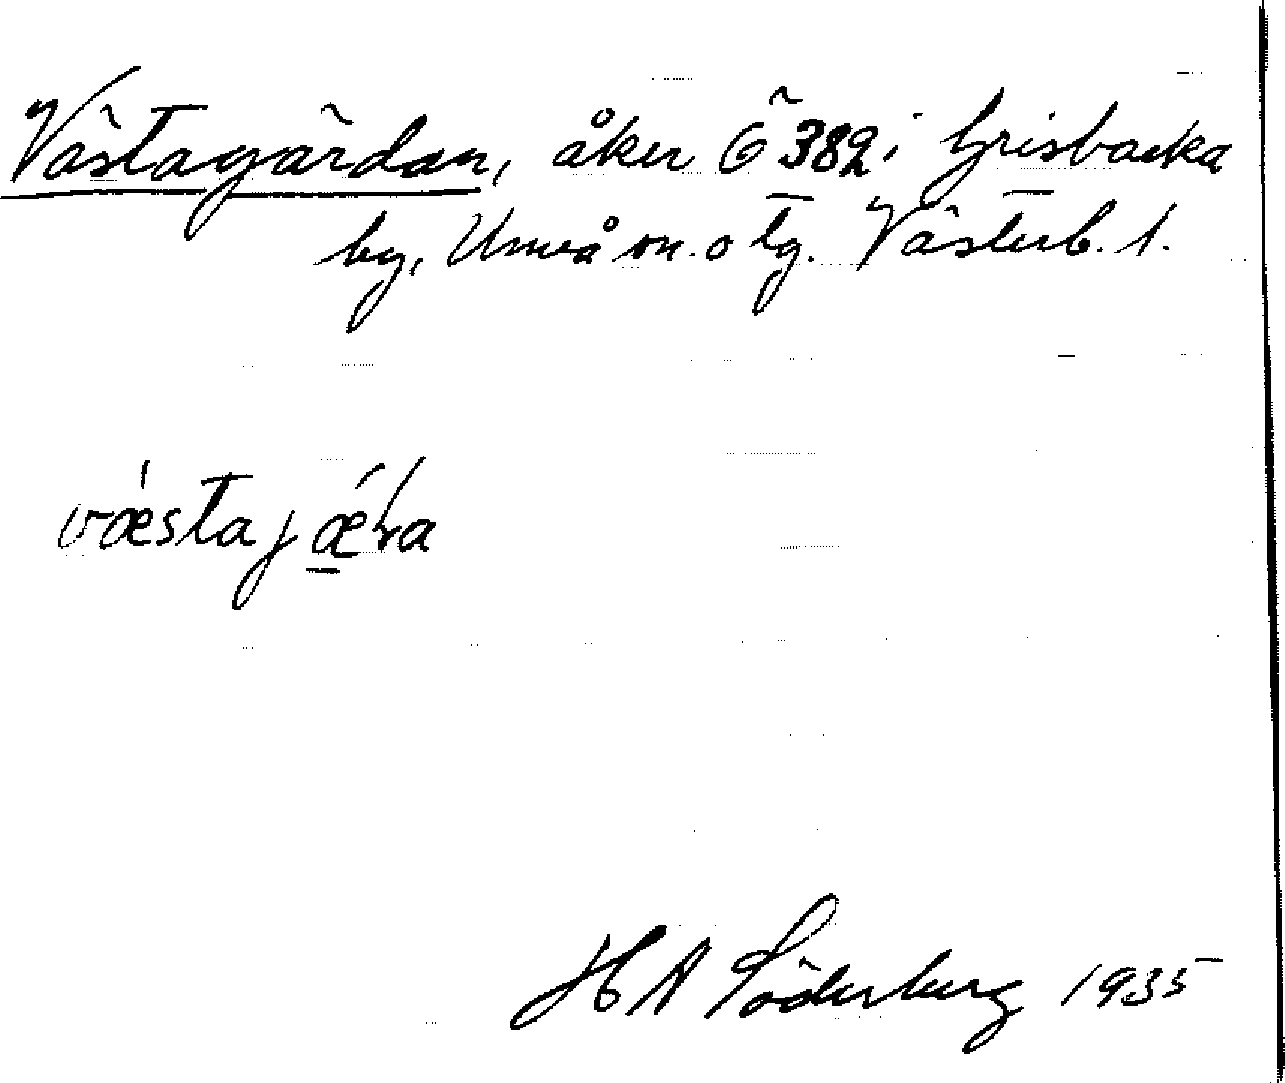 Västagärdan, åker Ö 382 i Grisbacka
by, Umeå sn. o tg. Västerb. l.
væ̀stajǽ̠ra
H A Söderberg 1935